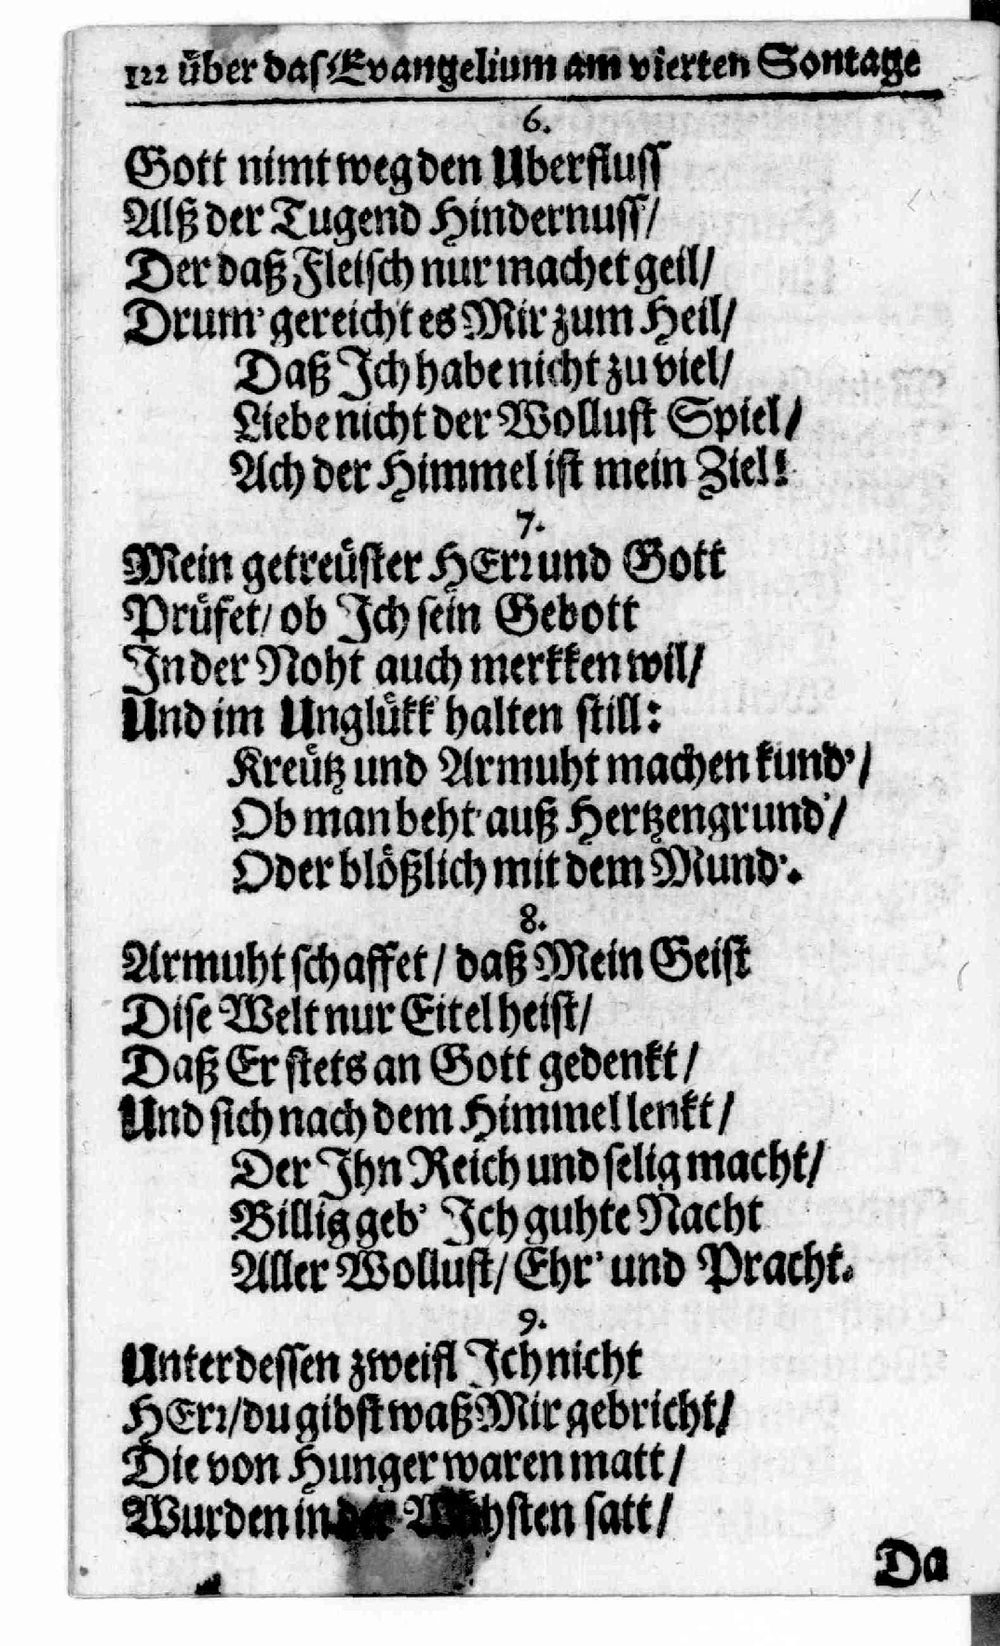 122 über das Evangelium am vierten Sontage
6.
Gott nimt weg den Uberfluss
Alß der Tugend Hindernuss/
Der daß Fleisch nur machet geil/
Drum' gereicht es Mir zum Heil/
Daß Ich habe nicht zu viel/
Liebe nicht der Wollust Spiel/
Ach der Himmel ist mein Ziel!
7.
Mein getreüster HErr und Gott
Prüfet/ ob Ich sein Gebott
In der Noht auch merkken wil/
Und im Unglükk halten still:
Kreütz und Armuht machen kund'/
Ob man beht' auß Hertzengrund'/
Oder blößlich mit dem Mund'.
8.
Armuht schaffet/ daß Mein Geist
Dise Welt nur Eitel heist/
Daß Er stets an Gott gedenkt/
Und sich nach dem Himmel lenkt/
Der Ihn Reich und selig macht/
Billig geb' Ich guhte Nacht
Aller Wollust/ Ehr' und Pracht.
9.
Unterdessen zweifl Ich nicht
HErr/ du gibst waß Mir gebricht/
Die von Hunger waren matt/
Wurden in der satt/
Da